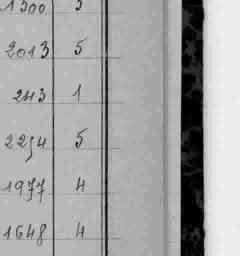 1300 3
2013 5
243 1
2254 5
1977 4
1648 4